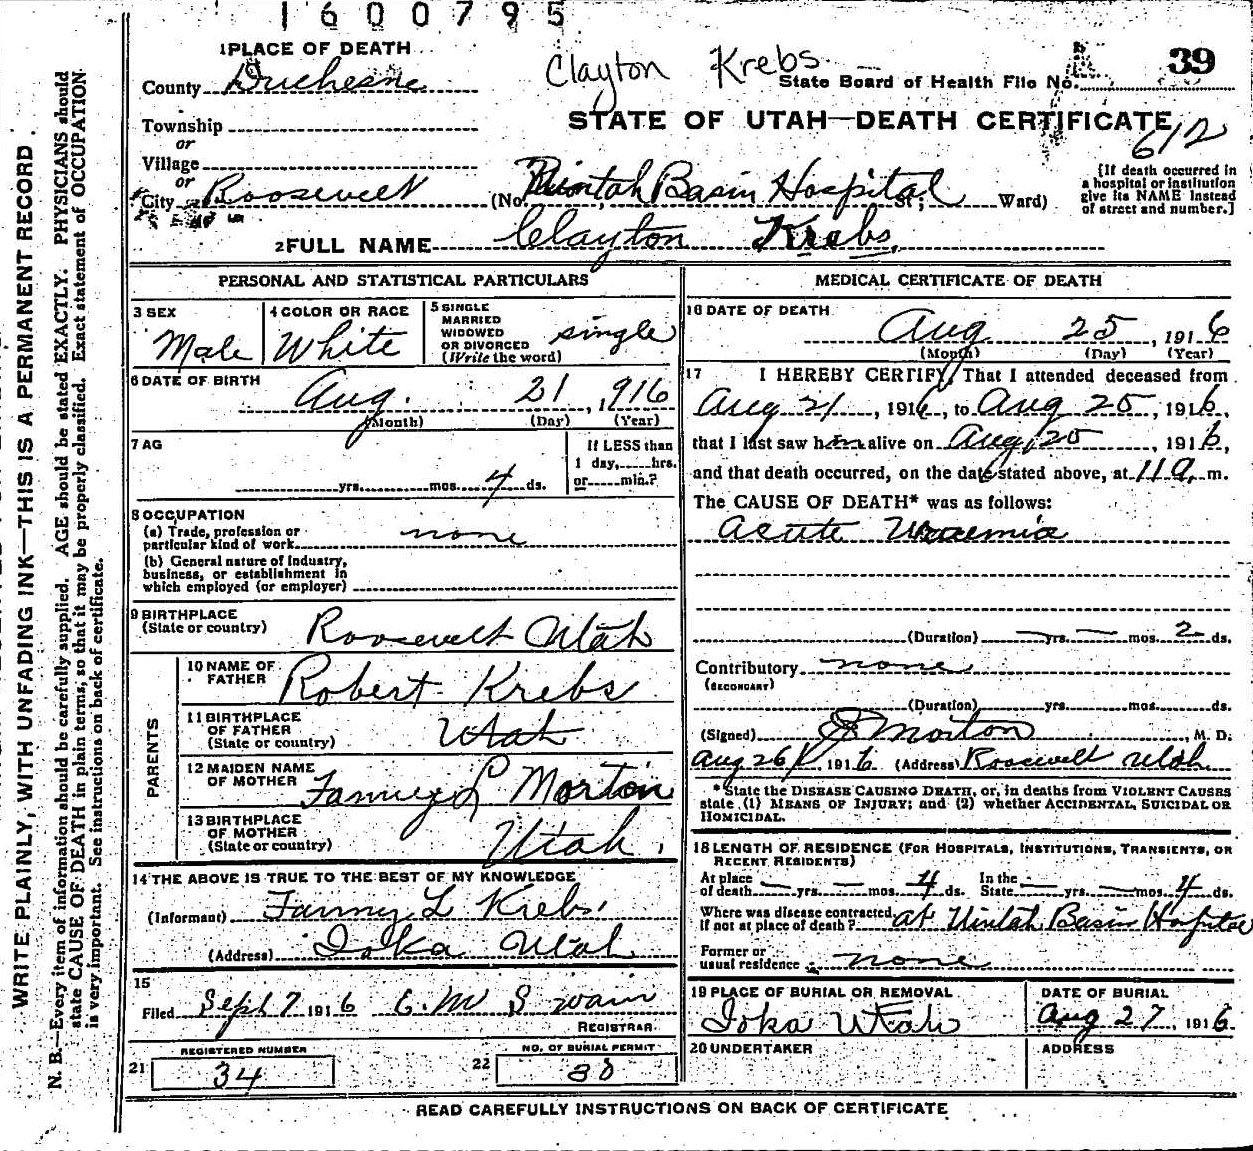 1600795
1 PLACE OF DEATH
County Duchesne
Clayton Krebs
State Board of Health File No. 39
Township
or
STATE OF UTAH—DEATH CERTIFICATE
612
Village
or
City Roosevelt (No. Uintah Basin Hospital St; Ward)
[If death occurred in
a hospital or institution
give its NAME instead
of street and number.]
2 FULL NAME Clayton Krebs
WRITE PLAINLY, WITH UNFADING INK—THIS IS A PERMANENT RECORD.
N. B.—Every item of information should be carefully supplied. AGE should be stated EXACTLY. PHYSICIANS should
state CAUSE OF DEATH in plain terms, so that it may be properly classified. Exact statement of OCCUPATION
is very important. See instructions on back of certificate.
PERSONAL AND STATISTICAL PARTICULARS
3 SEX
Male
4 COLOR OR RACE
White
5 SINGLE
MARRIED
WIDOWED
OR DIVORCED
(Write the word)
single
6 DATE OF BIRTH
Aug. 21, 1916
(Month) (Day) (Year)
7 AG
yrs. mos. 4 ds.
If LESS than
1 day, hrs.
or min.?
8 OCCUPATION
(a) Trade, profession or
particular kind of work none
(b) General nature of Industry,
business, or establishment in
which employed (or employer)
9 BIRTHPLACE
(State or country) Roosevelt Utah
PARENTS
10 NAME OF
FATHER Robert Krebs
11 BIRTHPLACE
OF FATHER
(State or country) Utah
12 MAIDEN NAME
OF MOTHER Fanny L Morton
13 BIRTHPLACE
OF MOTHER
(State or country) Utah.
14 THE ABOVE IS TRUE TO THE BEST OF MY KNOWLEDGE
(Informant) Fanny L Krebs.
(Address) Ioka Utah
15
Filed Sept 7 1916 C. M Swain
REGISTRAR
REGISTERED NUMBER
21 34
NO. OF BURIAL PERMIT
22 38
MEDICAL CERTIFICATE OF DEATH
16 DATE OF DEATH
Aug 25, 1916
(Month) (Day) (Year)
17 I HEREBY CERTIFY, That I attended deceased from
Aug 21, 1916, to Aug 25, 1916,
that I last saw him alive on Aug, 25, 1916,
and that death occurred, on the date stated above, at 11 a. m.
The CAUSE OF DEATH* was as follows:
Acute Uraemia
(Duration) — yrs. — mos. 2 ds.
Contributory none
(SECONDARY)
(Duration) yrs. mos. ds.
(Signed) Morton, M. D.
Aug 26, 1916 (Address) Roosevelt Utah
*State the DISEASE CAUSING DEATH, or, in deaths from VIOLENT CAUSES
state (1) MEANS OF INJURY; and (2) whether ACCIDENTAL, SUICIDAL OR
HOMICIDAL.
18 LENGTH OF RESIDENCE (FOR HOSPITALS, INSTITUTIONS, TRANSIENTS, OR
RECENT RESIDENTS)
At place
of death — yrs. — mos. 4 ds. In the
State — yrs. — mos. 4 ds.
Where was disease contracted,
if not at place of death? at Uintah Basin Hospital
Former or
usual residence none
19 PLACE OF BURIAL OR REMOVAL
Ioka Utah
DATE OF BURIAL
Aug 27, 1916
20 UNDERTAKER
ADDRESS
READ CAREFULLY INSTRUCTIONS ON BACK OF CERTIFICATE